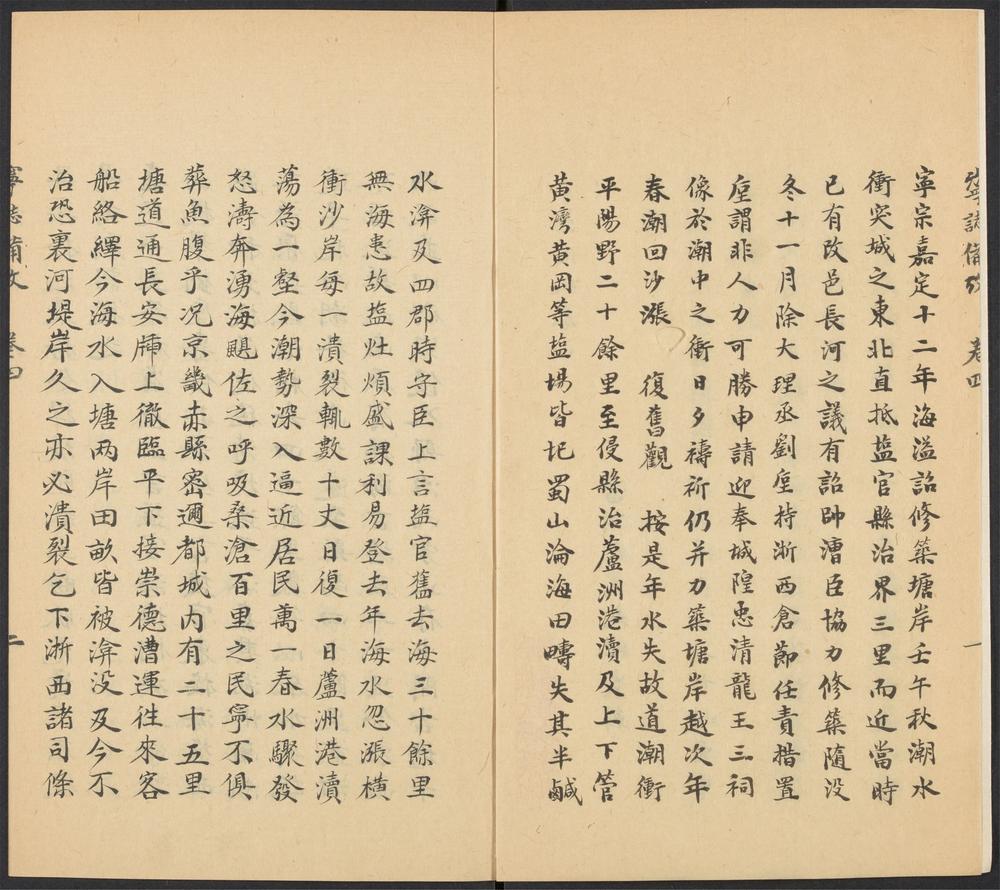 寧志備攷　卷四　一
寧宗嘉定十二年海溢詔修築塘岸壬午秋潮水
衝突城之東北直抵盐官縣治界三里而近當時
已有改邑長河之議有詔帥漕臣協力修築隨没
冬十一月除大理丞劉垕持浙西倉節任責措置
垕謂非人力可勝申請迎奉城隍忠清龍王三祠
像於潮中之衝日夕禱祈仍并力築塘岸越次年
春潮回沙漲　復舊觀　按是年水失故道潮衝
平陽野二十餘里至侵縣治蘆洲港瀆及上下管
黄灣黄岡等盐塲皆圮蜀山淪海田疇失其半鹹
水渰及四郡時守臣上言盐官舊去海三十餘里
無海患故盐灶煩盛課利易登去年海水忽漲横
衝沙岸每一潰裂輒數十丈日復一日蘆洲港瀆
蕩為一壑今潮勢深入逼近居民萬一春水驟發
怒濤奔湧海颶佐之呼吸桑滄百里之民寧不俱
葬魚腹乎况京畿赤縣密邇都城内有二十五里
塘道通長安牐上徹臨平下接崇德漕運往來客
船絡繹今海水入塘两岸田畝皆被渰没及今不
治恐裏河堤岸久之亦必潰裂乞下浙西諸司條
寧志備攷　卷四　二